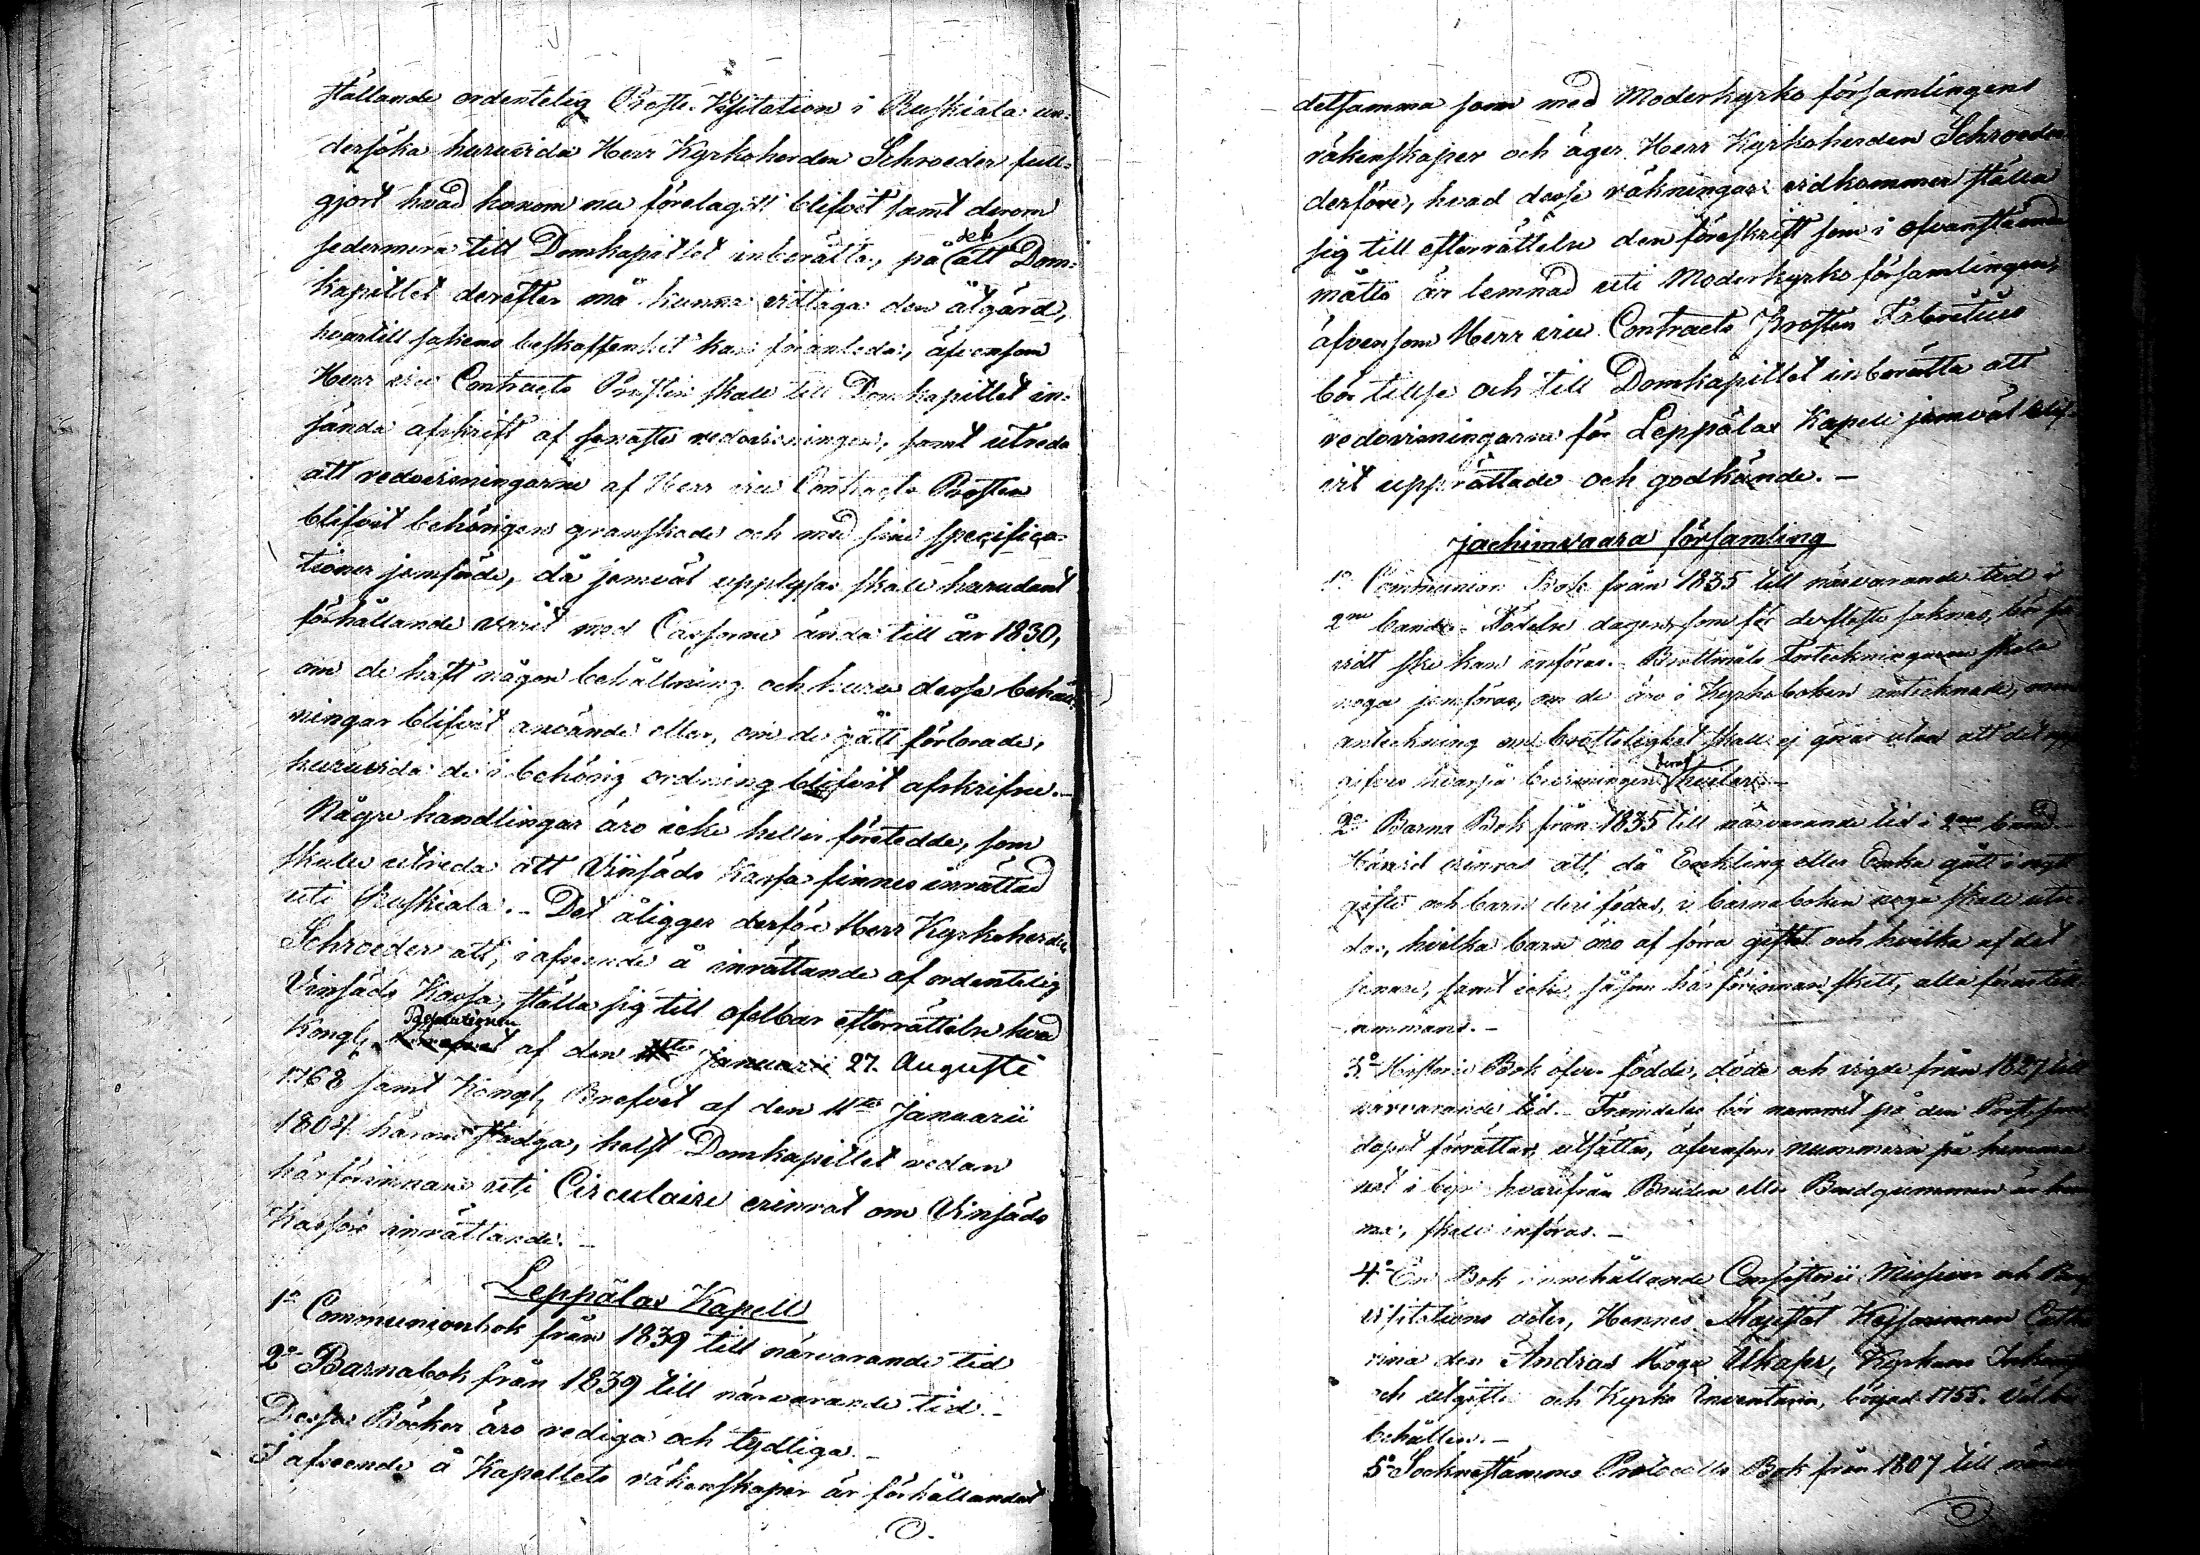 ställande ordentelig Prosts Visitation i Ruskiala un-
dersöka huruvida Herr Kyrkoherden Schroeder full-
gjort hvad honom nu förelagdt blifvit samt derom
sedermera till Domkapitlet inberätta, på det att Dom-
kapitlet derefter må kunna vidtaga den åtgärd,
hvartill sakens beskaffenhet kan föranleda, äfvensom
Herr vice Contracts Prosten skall till Domkapitlet in-
sända afskrift af senaste redovisningen, samt utreda
att redovisningarne af Herr vice Contracts Prosten
blifvit behörigen granskade och med sine specifica-
tioner jemförde, då jemväl upplysas skall hurudant
förhållande varit med Cassorne ända till år 1830,
om de haft någon behållning och huru dessa behåll-
ningar blifvit använde eller, om de gått förlorade,
huruvida de i behörig ordning blifvit afskrifne.-
Någre handlingar äro icke heller företedde, som
skulle utreda att Vinsäds Kassa finnes inrättad
uti Ruskiala.- Det åligger derföre Herr Kyrkoherden
Schroeder att, i afseende å inrättande af ordentelig
Vinsäds Kassa, ställa sig till ofelbar efterrättelse hvad
Kongl. Resolutionen af den 11te Januarii 27. Augusti
1768 samt Kongl. Brefvet af den 11te Januarii
1804 härom stadga, helst Domkapitlet redan
härförinnan uti Circulaire erinrat om Vinsäds
Kassors inrättande.-
Leppälax Kapell
1o Communionbok från 1839 till närvarande tid
2o Barnabok från 1839 till närvarande tid.-
Dessa Böcker äro rediga och tydliga.-
I afseende å Kapellets räkenskaper är förhållandet
detsamma som med Moderkyrko församlingens
räkenskaper och äger Herr Kyrkoherden Schroeder
derföre, hvad desse räkningar vidkommer ställa
sig till efterrättelse den föreskrift som i ofvanstående
måtto är lemnad uti Moderkyrko församlingen,
äfvensom Herr vice Contracts Prosten
bör tillse och till Domkapitlet inberätta att
redovisningarne för Leppälax Kapell jemväl blif-
vit upprättade och godkände.-
Jachimvaara församling
1o Communion Bok från 1835 till närvarande tid i
2ne band.- Födelse dagen, som för de flesta saknas, bör så
vidt ske kan införas.- Brottmåls Förteckningarne skola
noga jemföras, om de äro i Kyrkoboken antecknade, men
anteckning om brottslighet skall ej göras utan att det
gifves hvarpå bevisningen derof hvilar.-
2o Barna Bok från 1835 till närvarande tid i 2ne band
härvid erinras att, då Enkling eller Enka gått i nytt
gifte och barn deri födas, i barnaboken noga skall utre-
das, hvilka barn äro af förra giftet och hvilka af det
senare, samt icke, såsom härförinnan skett, alla föras till-
sammans.-
3o Historie Bok öfver födde, döde och vigde från 1827 till
närvarande tid.- Framdeles bör namnet på den Prest som
dopet förrättat, utsättas, äfvensom nummern på hemma-
net i byn hvarifrån Bruden eller Brudgummen är hem-
ma, skall införas.-
4o En Bok innehållande Consistorii Missiver och
visitations acter, Hennes Majestät Kejsarinnan Catha-
rina den Andras Höga Ukaser, Kyrkans
och utgift och Kyrko Inventarium, börjad 1755. Väl
behållen.-
5o Sockenstämmo Protocolls Bok från 1807 till